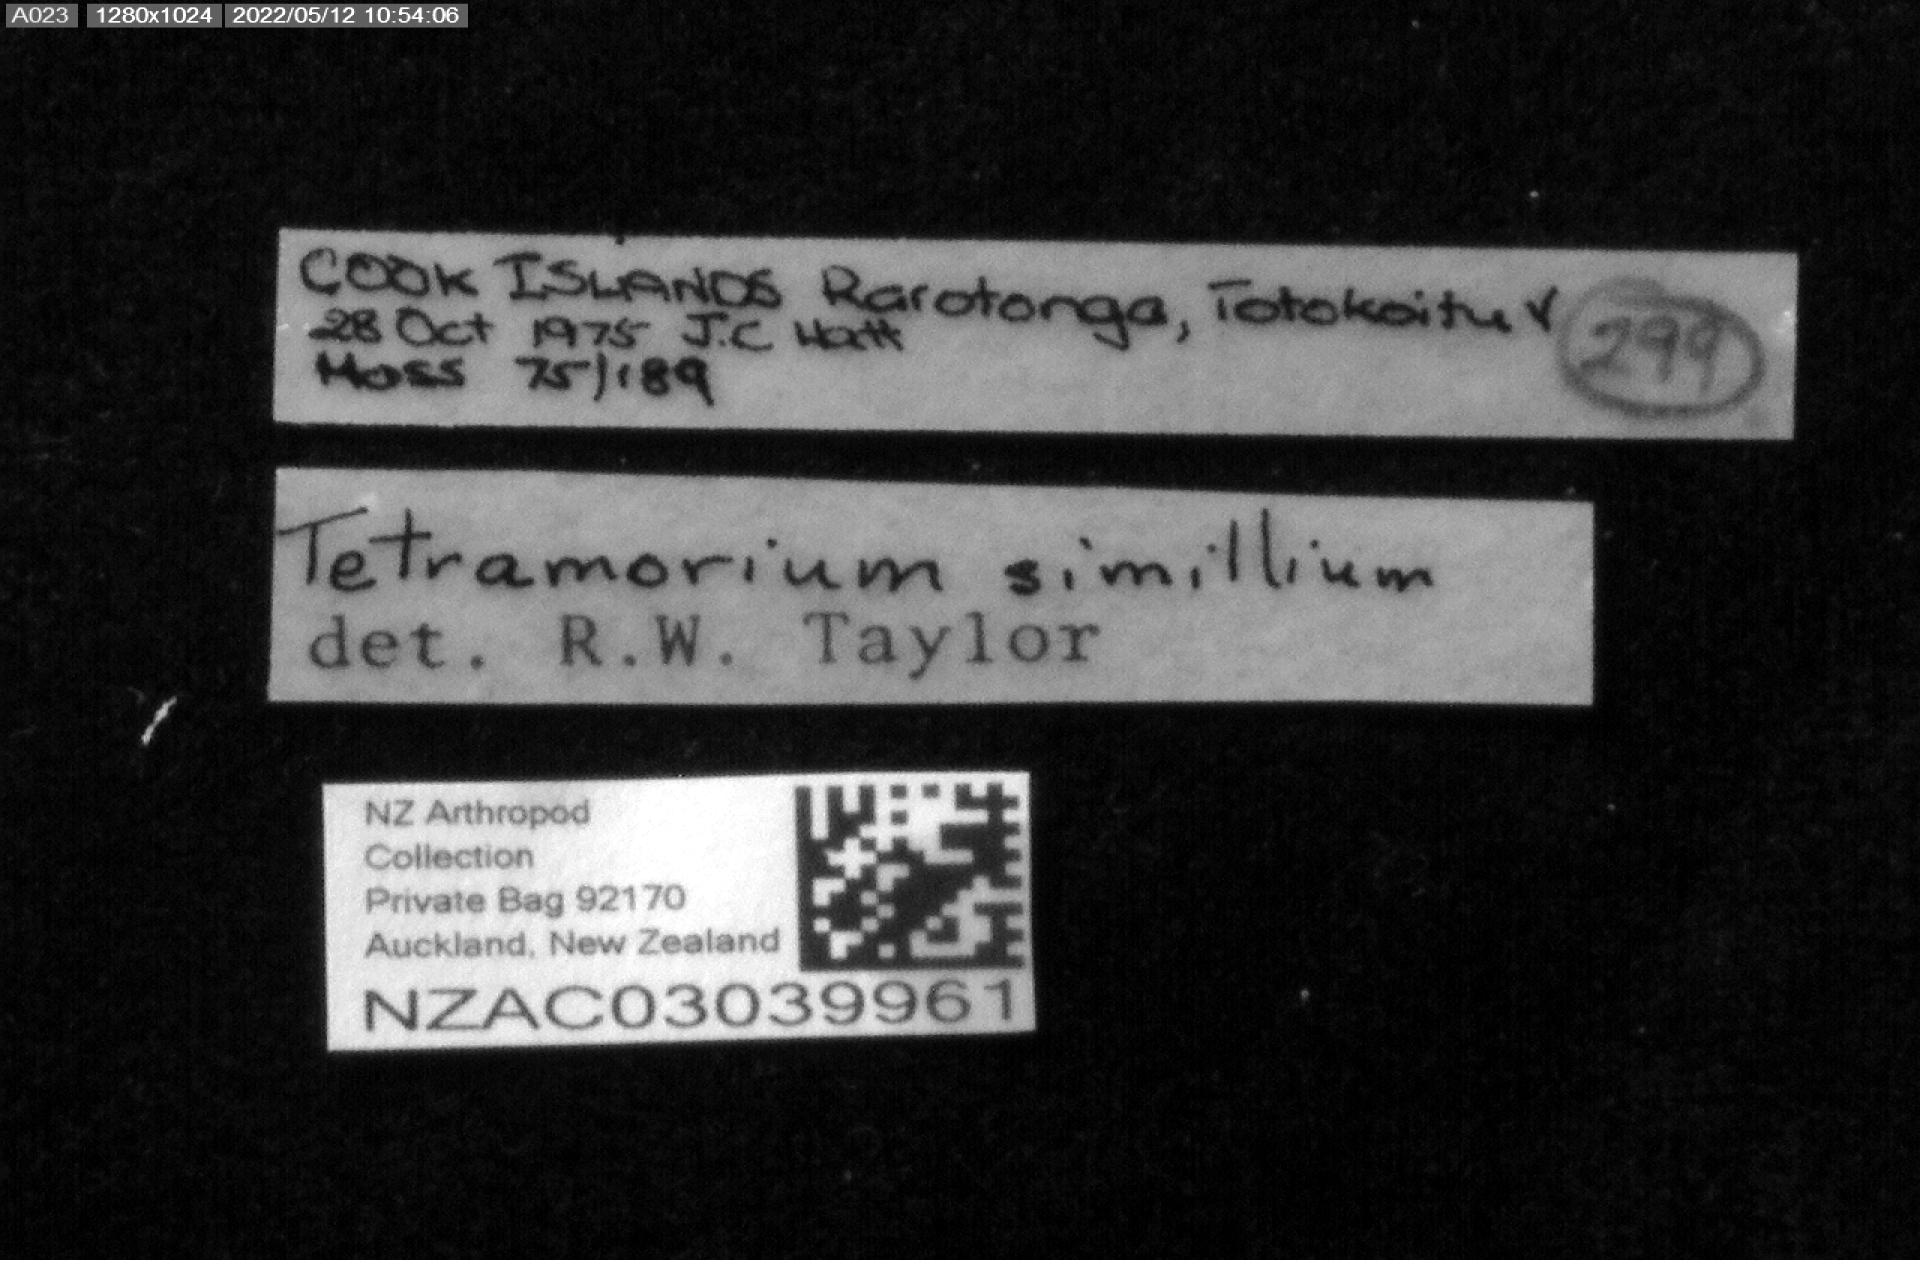 A023 1280x1024 2022/05/12 10:54:06
COOK ISLANDS Rarotonga, Totokoitu V
28 Oct 1975 J.C Watt
Moss 75/189
299
Tetramorium simillium
det. R.W. Taylor
NZ Arthropod
Collection
Private Bag 92170
Auckland, New Zealand
NZAC03039961